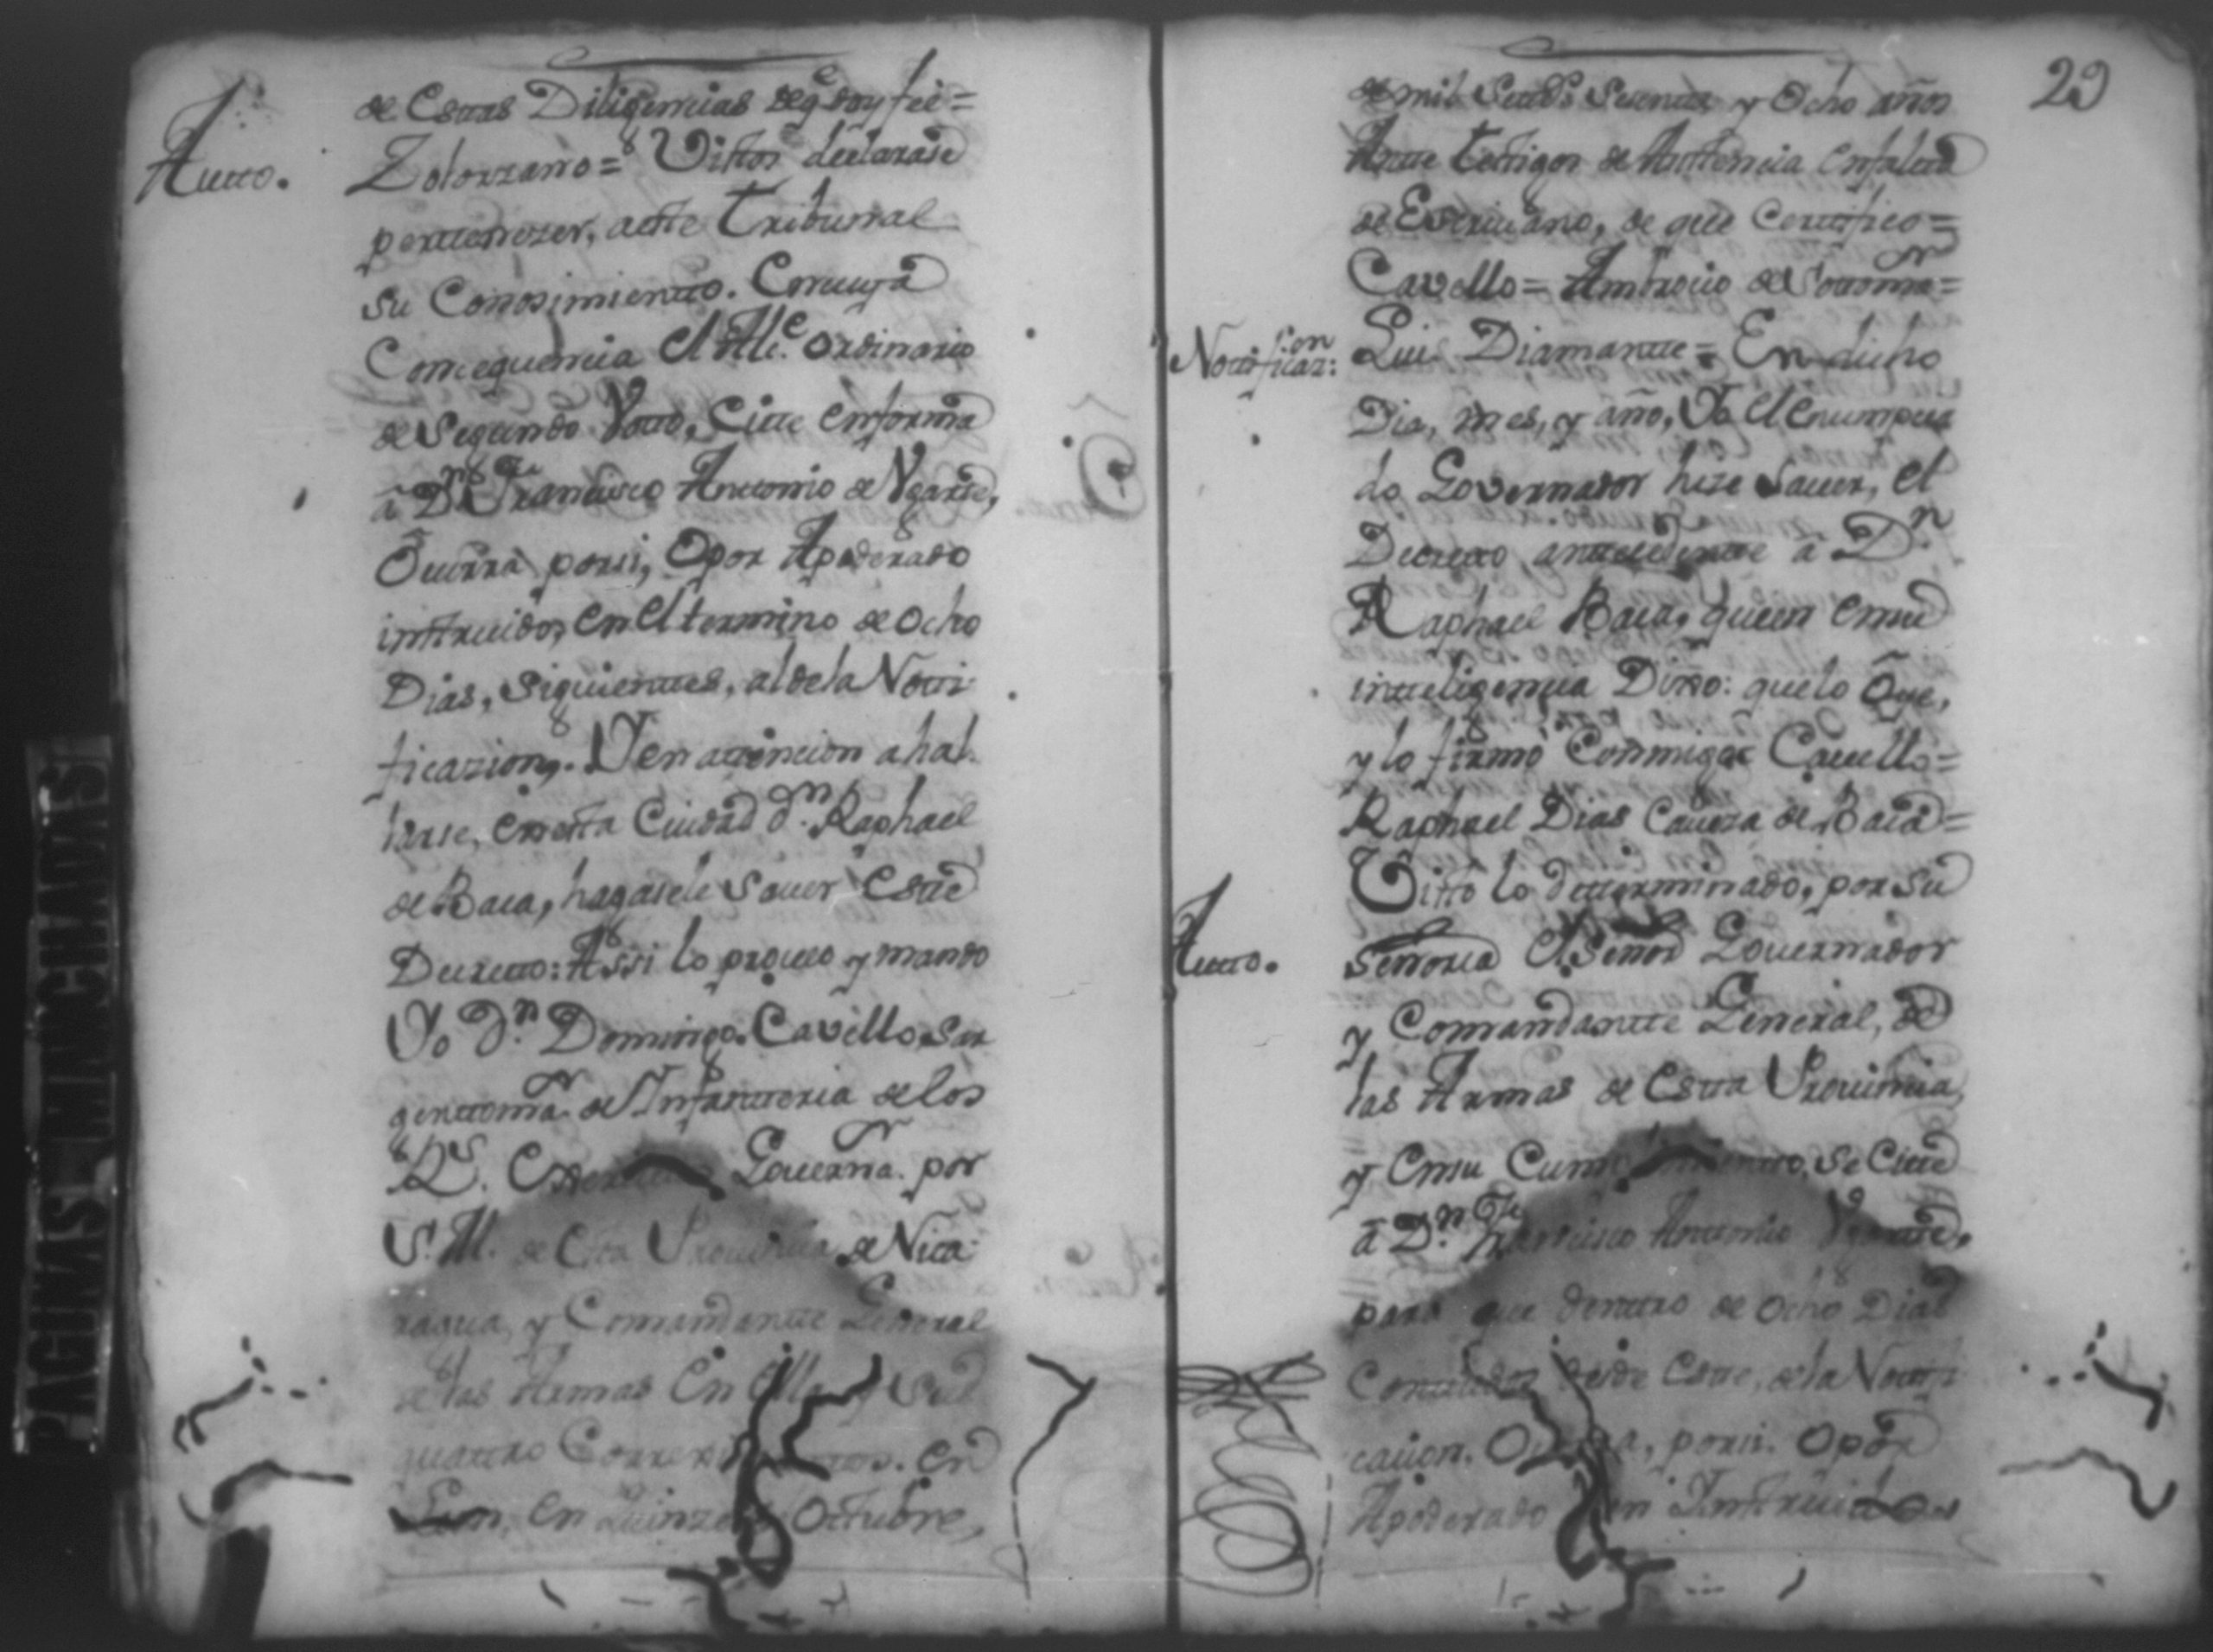 de Estas Diligencias deq.e doy fee=
Autto.
Zolorzano= Vistos declarase
perttenezer, aeste Tribunal
su Conosimientto. Con cuya
Consequencia el Alle.e ordinario
de Segundo Votto, Citte en forma
â D.n Francisco Anttonio de Ygarte,
Ôcurra porsi, Opor Apoderado
instruido, en el termino de ocho
Dias, siguienttes, aldela Notti
ficazion,. Y en attencion a hal
larse, en esta Ciudad d.n Raphael
de Baca, hagasele saver Estte
Decretto: Assi lo proveo y mando
Yo D.n Domingo Cavello Sar
genttoma.r de Ynfantteria delos
R.s Governa.r por
S. M. de Esta Provincia de Nica
ragua, y Comandantte General
de las Armas En ella y sus
quattro En
Leon, en Quinze de Octtubre,
29
de mil Settes.s Sesentta y Ocho años
Antte Testigos de Asistencia enfaltta
de Escrivano, de que Certtifico=
Cavello= Ambrocio de Sottoma.r=
Nottificaz.on:
Luis Diamantte= En dicho
Dia, mes, y año, Yo el enumpcia
do Governador hize saver, el
Decretto anttecedentte â D.n
Raphael Baca, quien ensu
inttelixencia Dixo: quelo Ôye,
y lo firmó Conmigo= Cavello=
Raphael Dias Caveza de Baca=
Autto.
Visto lo determinado, por su
Señoria el Señor Governador
y Comandantte General, de
las Armas de Estta Provincia,
y Ensu se Citte
â D.n Francisco Anttonio Ygartte,
para que denttro de ocho Dias
Conttados desde Estte, de la Notti
cacion. porsi. Opor
Apoderado Ynstruidos
PAGINAS MANCHADAS